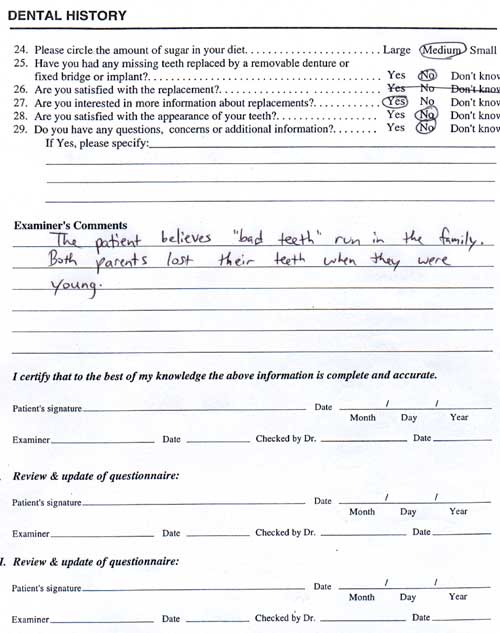 DENTAL HISTORY
24. Please circle the amount of sugar in your diet. . . . . . . . . . . . . . . . . . . . . . . . . Large Medium Small
25. Have you had any missing teeth replaced by a removable denture or
fixed bridge or implant?. . . . . . . . . . . . . . . . . . . . . . . . . . . . . . . . . . . . . . . . . Yes No Don't know
26. Are you satisfied with the replacement?. . . . . . . . . . . . . . . . . . . . . . . . . . . . . Yes No Don't know
27. Are you interested in more information about replacements?. . . . . . . . . . . . . Yes No Don't know
28. Are you satisfied with the appearance of your teeth?. . . . . . . . . . . . . . . . . . . Yes No Don't know
29. Do you have any questions, concerns or additional information?. . . . . . . . Yes No Don't know
If Yes, please specify:
Examiner's Comments
The patient believes "bad teeth" run in the family.
Both parents lost their teeth when they were
young.
I certify that to the best of my knowledge the above information is complete and accurate.
Patient's signature Date / /
Month Day Year
Examiner Date Checked by Dr. Date
. Review & update of questionnaire:
Patient's signature Date / /
Month Day Year
Examiner Date Checked by Dr. Date
I. Review & update of questionnaire:
Patient's signature Date / /
Month Day Year
Examiner Date Checked by Dr. Date